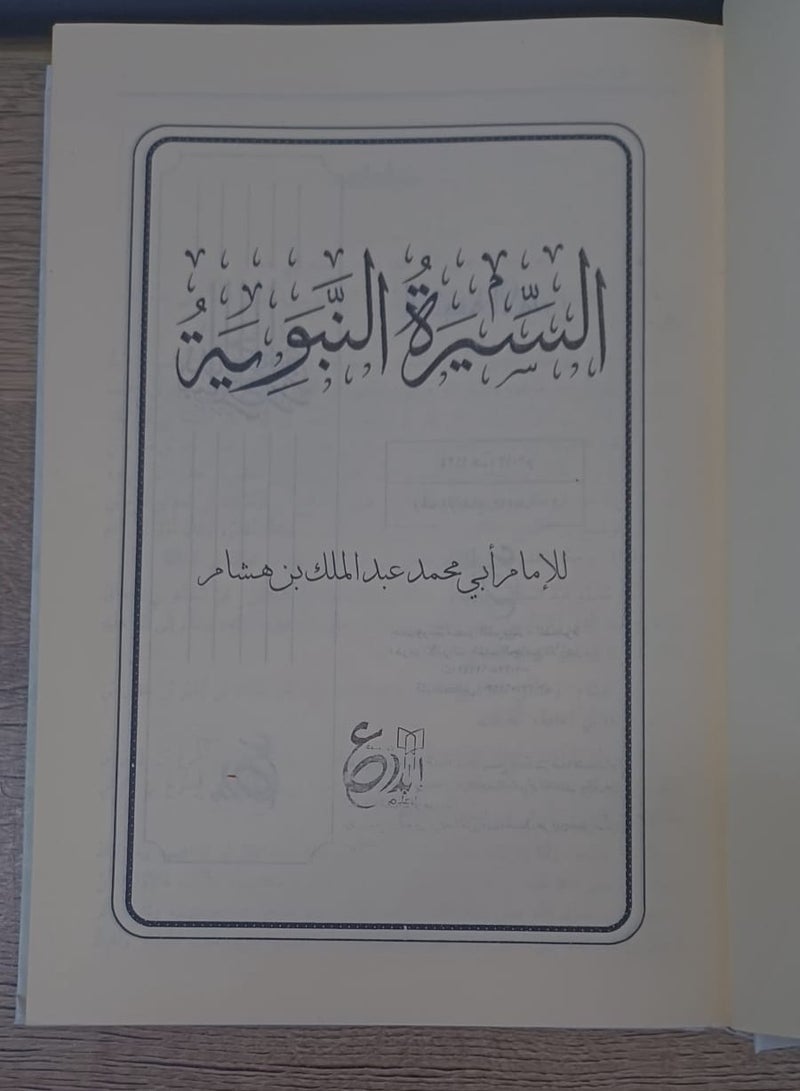 السِّيرَةُ النَّبَوِيَةُ
للإمام أبي محمد عبد الملك بن هشام
إبداع